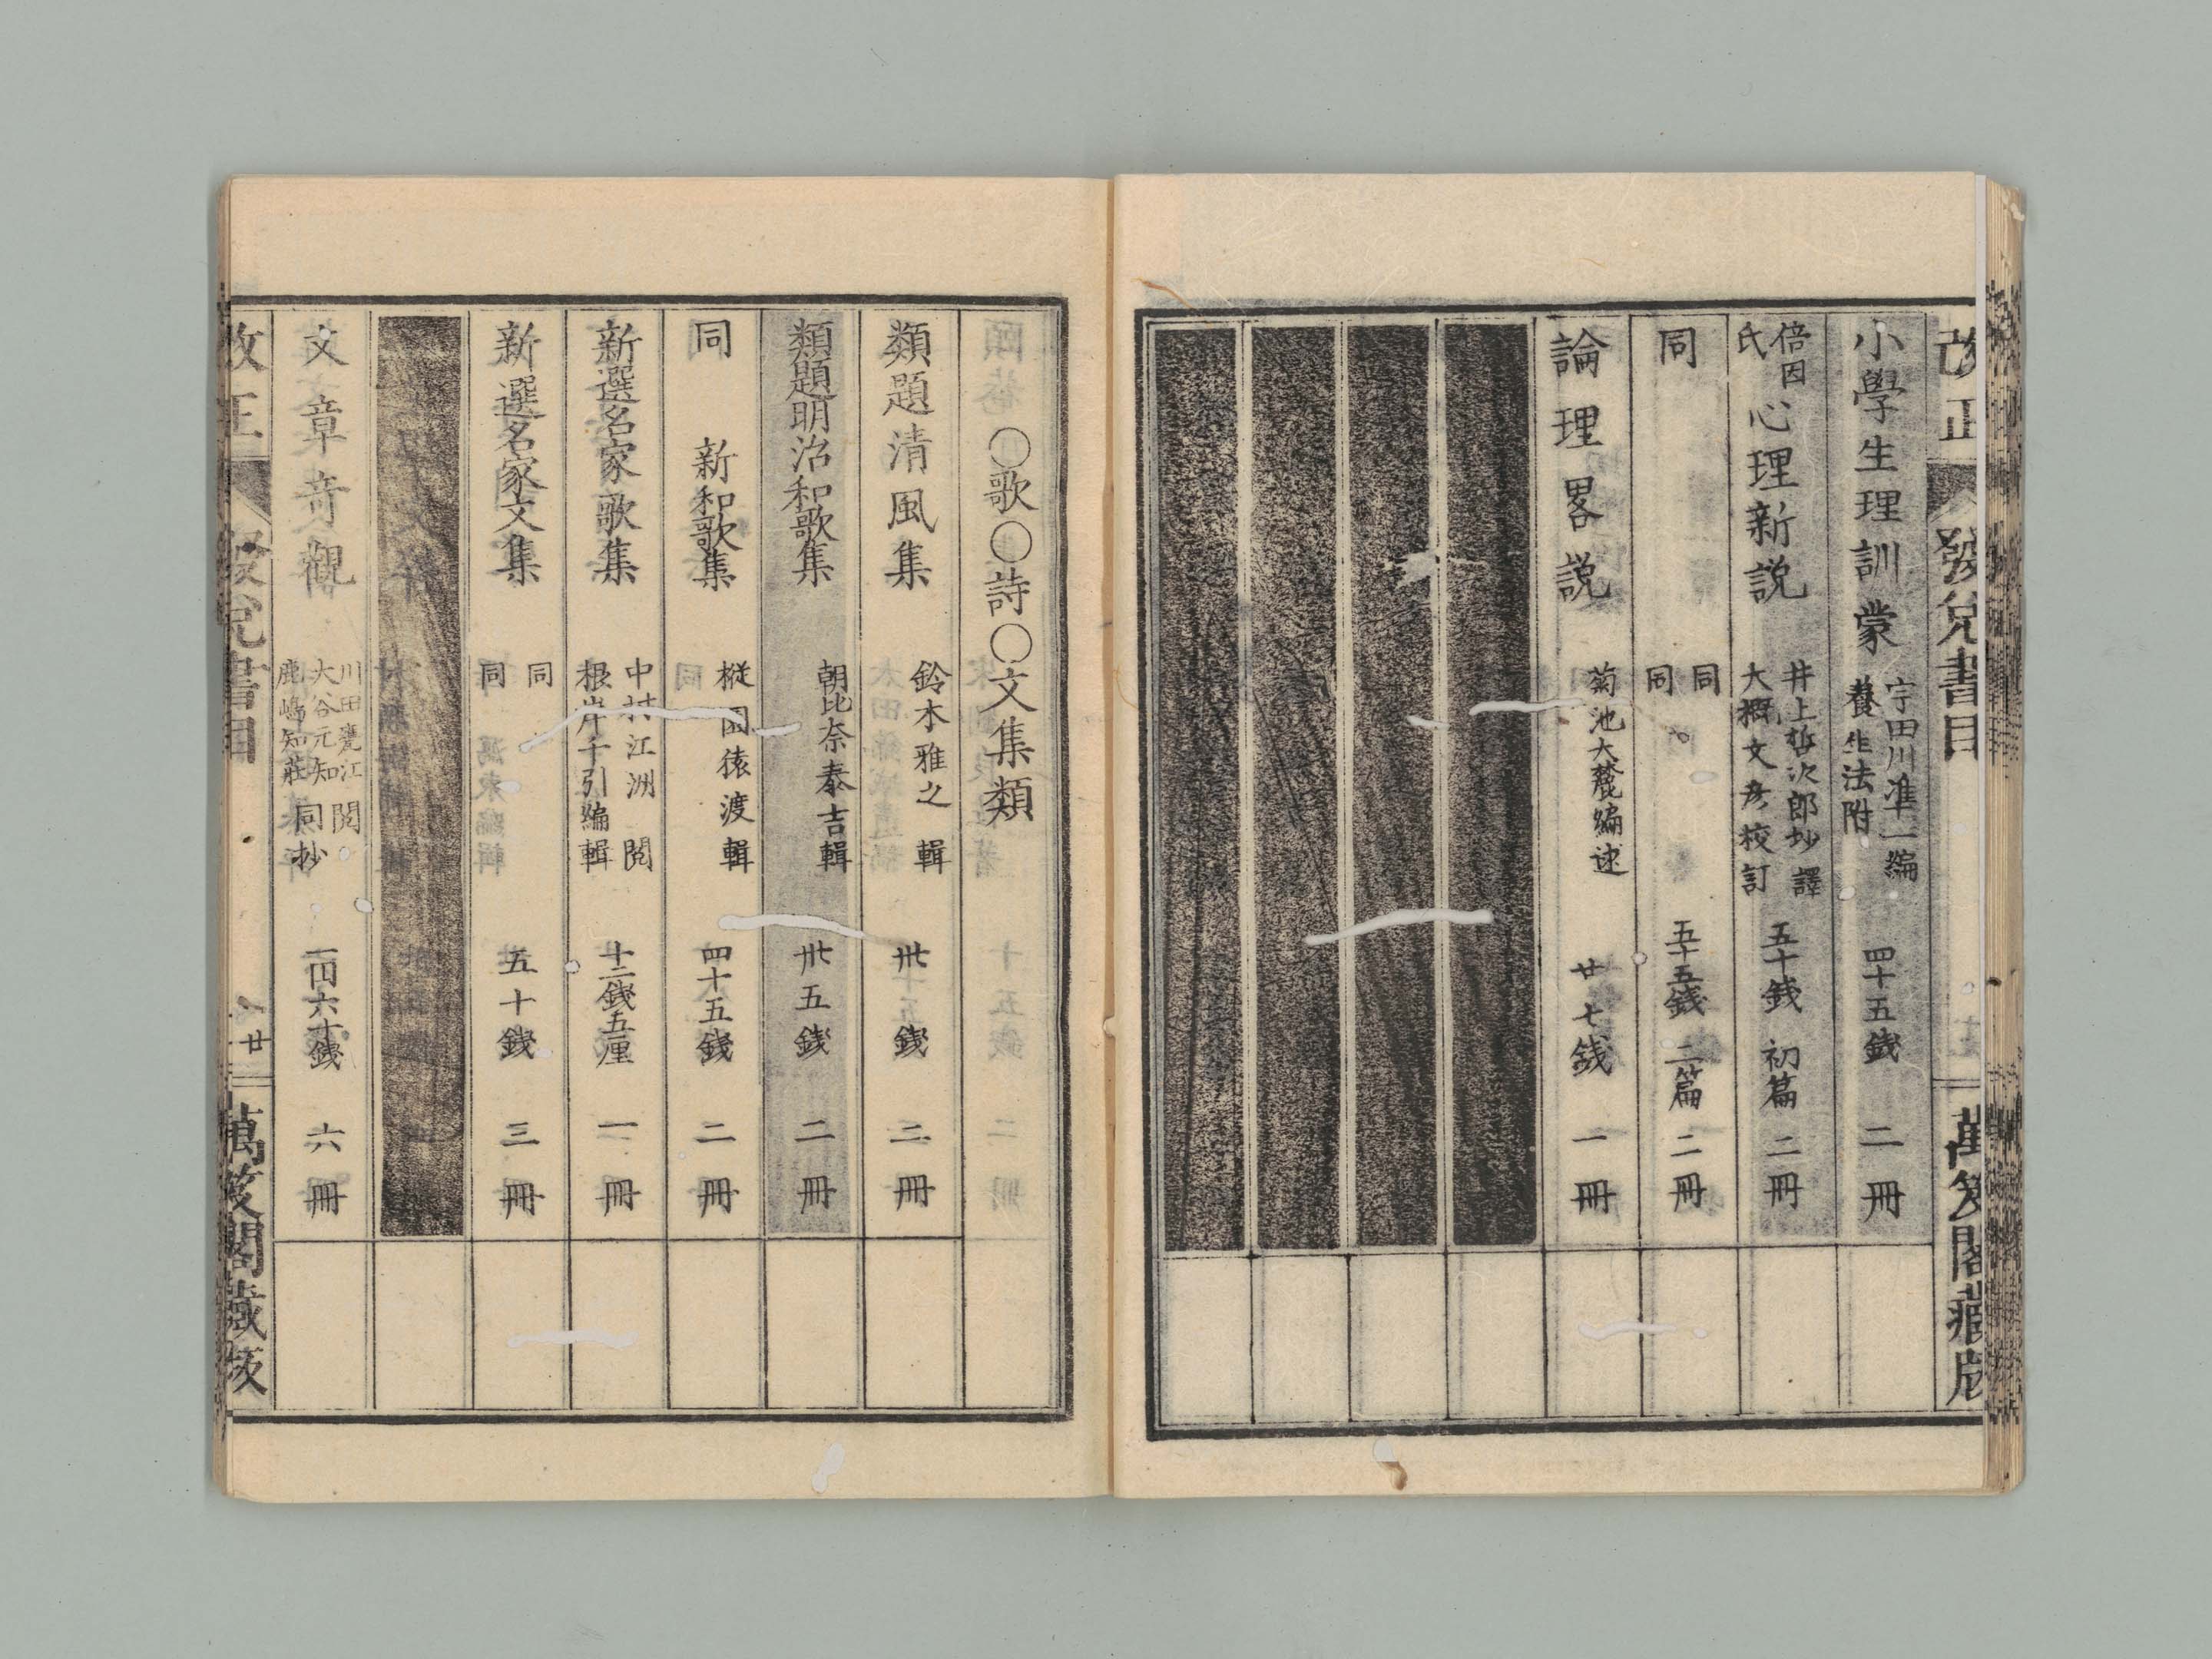 改正 發兌書目 萬笈閣藏版
小學生理訓蒙 宇田川準一編 養生法附 四十五錢 二冊
倍因氏 心理新説 井上哲次郎抄譯 大槻文彦校訂 五十錢 初篇 二冊
同 同 同 五十五錢 二篇 二冊
論理畧説 菊池大麓編述 廿七錢 一冊
○歌○詩○文集類
類題清風集 鈴木雅之輯 卅錢 二冊
類題明治和歌集 朝比奈泰吉輯 卅五錢 二冊
同 新和歌集 樅園猿渡輯 四十五錢 二冊
新選名家歌集 中村江洲閲 根岸千引編輯 十二錢五厘 一冊
新選名家文集 同 同 五十錢 三冊
文章奇觀 川田甕江 大谷元知閲 鹿嶋知莊同抄 一円六十錢 六冊
改正 發兌書目 廿 萬笈閣藏版